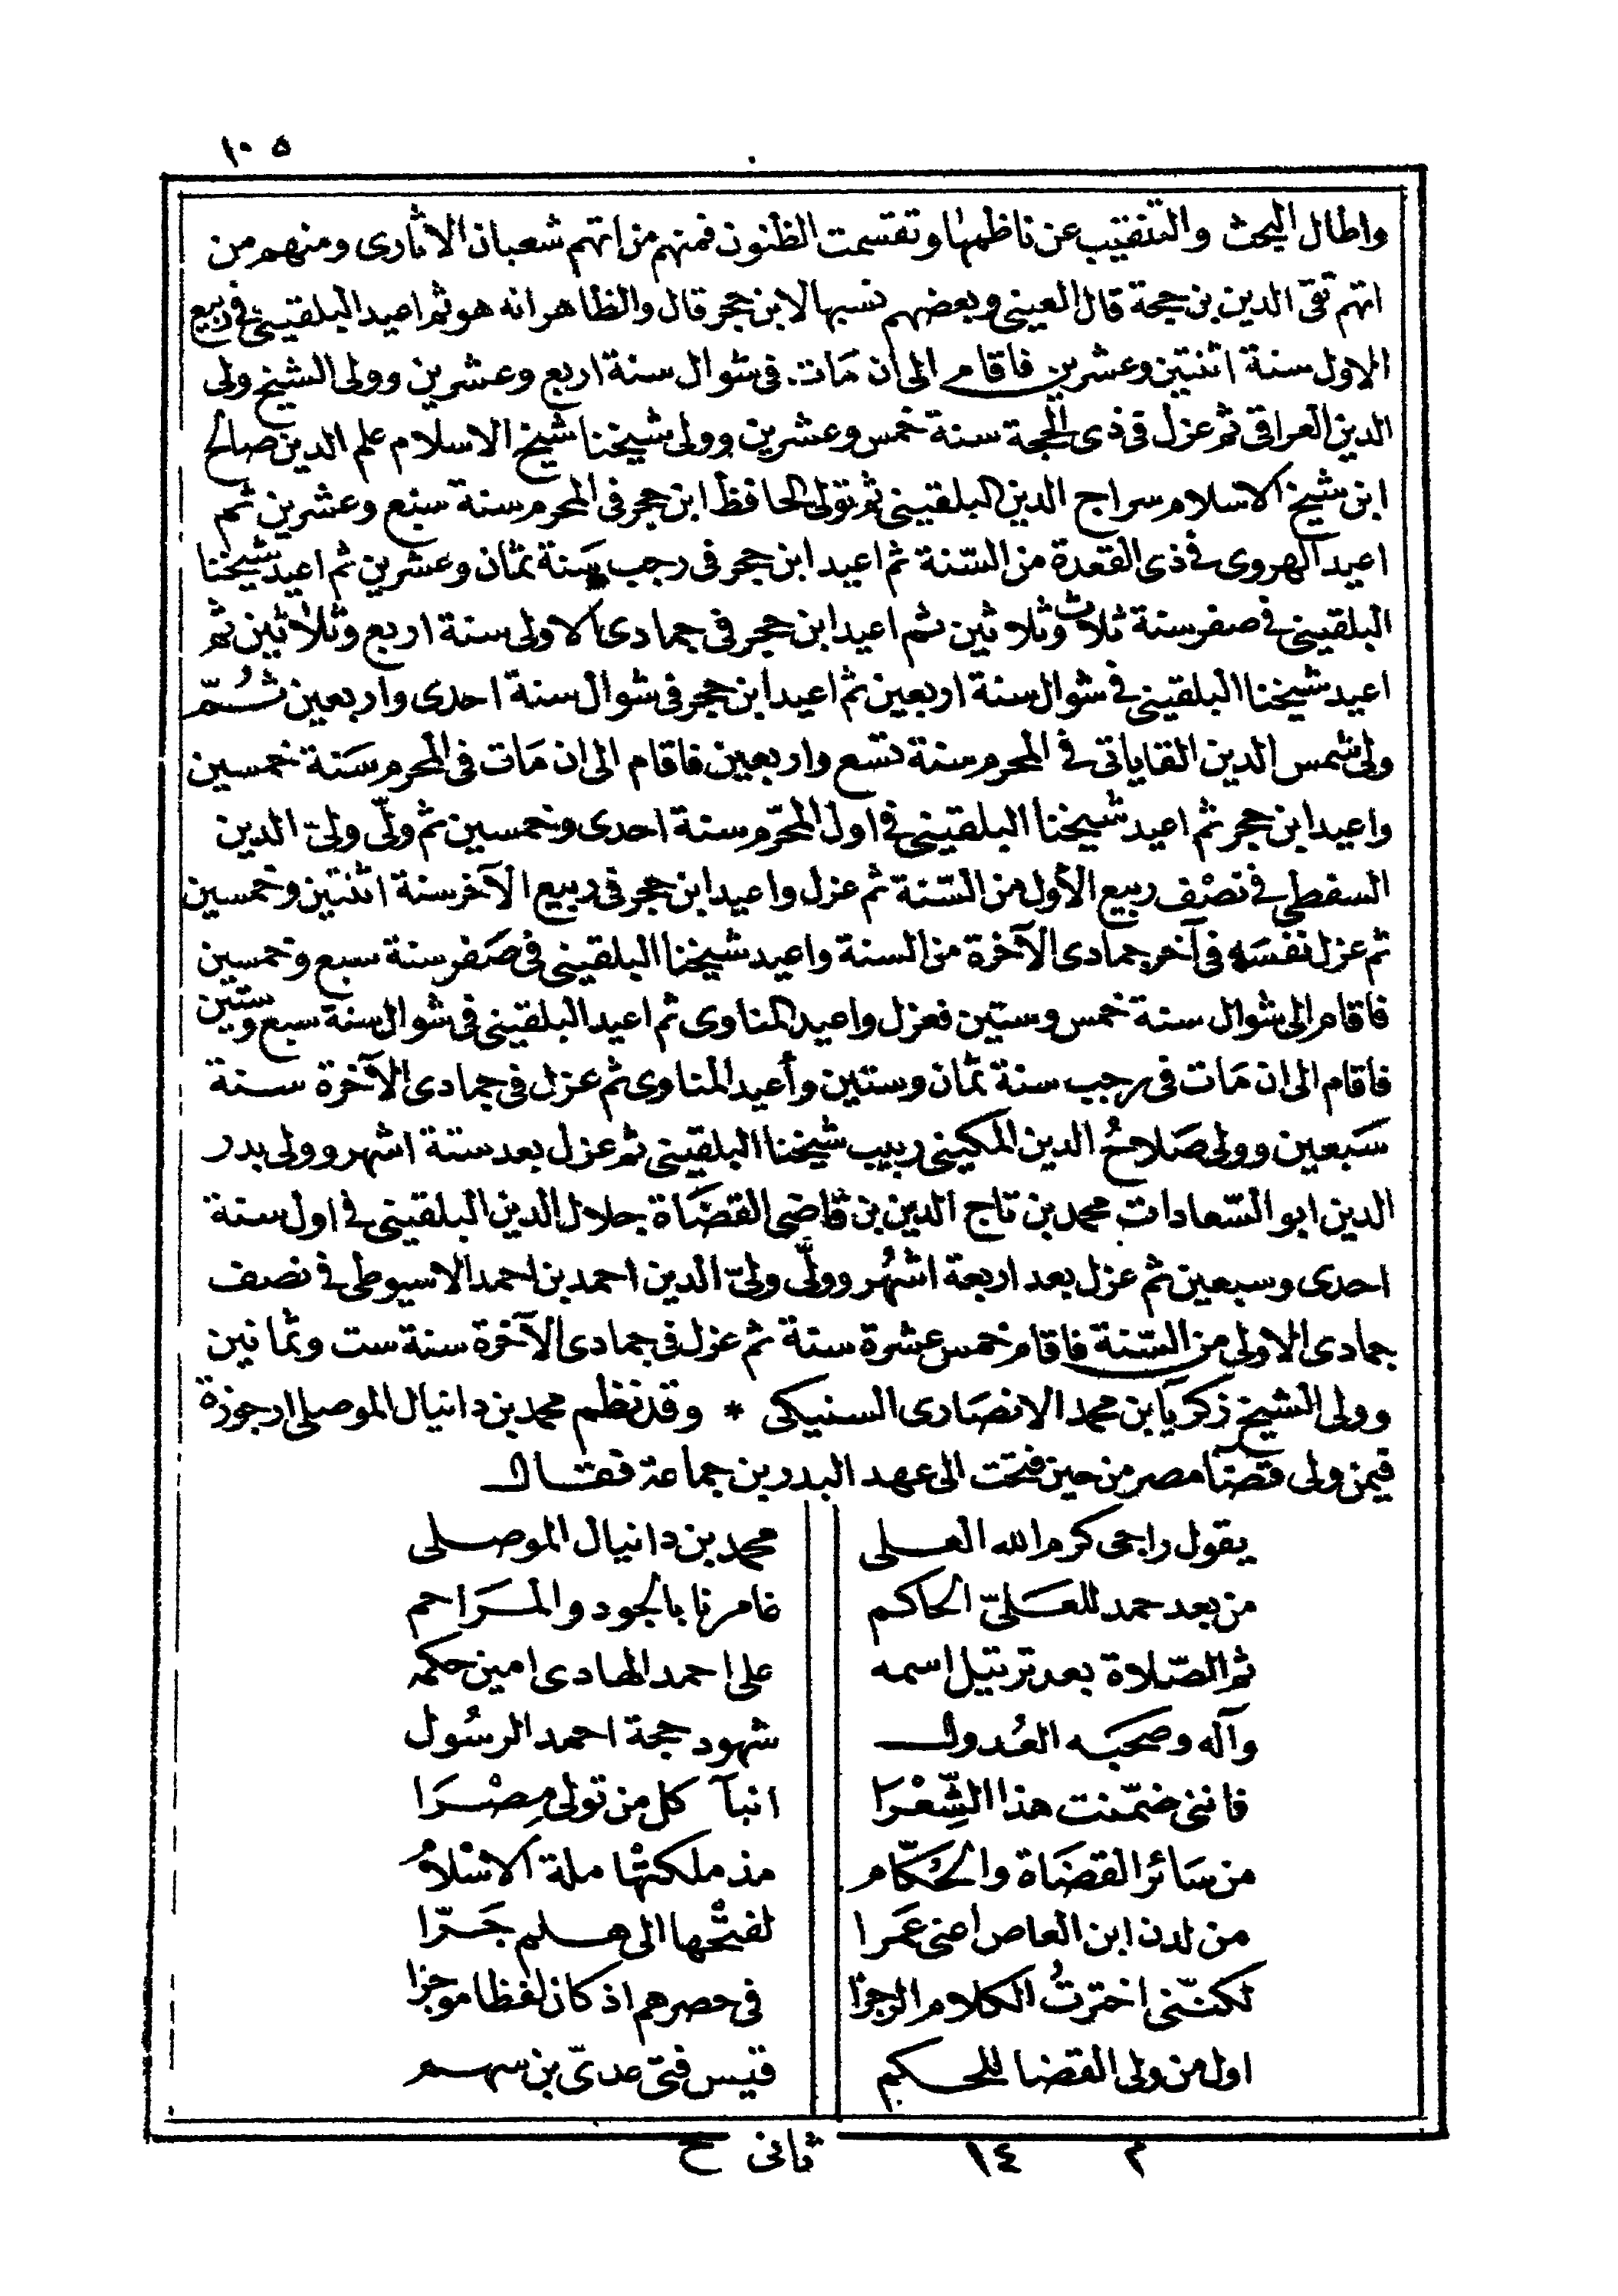 ١٠٥
واطال البحث والتنقيب عن ناظمها وتقسمت الظنون فمنهم من اتهم شعبان الاثارى ومنهم من
اتهم تقى الدين بن حجة قال العينى وبعضهم نسبها لابن حجر قال والظاهر انه هو ثم اعيد البلقينى فى ربيع
الاول سنة اثنتين وعشرين فاقام الى ان مَات فى شوال سنة اربع وعشرين وولى الشيخ ولى
الدين العراقى ثم عزل فى ذى الحجة سنة خمس وعشرين وولى شيخنا شيخ الاسلام علم الدين صالح
ابن شيخ الاسلام سراج الدين البلقينى ثم تولى الحافظ ابن حجر فى المحرم سنة سبع وعشرين ثم
اعيد الهروى فى ذى القعدة من السّنة ثم اعيد ابن حجر فى رجب سَنة ثمان وعشرين ثم اعيد شيخنا
البلقينى فى صفر سنة ثلاث وثلاثين ثم اعيد ابن حجر فى جمادى الاولى سنة اربع وثلاثين ثم
اعيد شيخنا البلقينى فى شوال سنة اربعين ثم اعيد ابن حجر فى شوال سنة احدى واربعين ثُمّ
ولى شمس الدين القاياتى فى المحرم سنة تسع واربعين فاقام الى ان مَات فى المحرم سَنة خمسين
واعيد ابن حجر ثم اعيد شيخنا البلقينى فى اول المحرّم سنة احدى وخمسين ثم ولّى ولىّ الدين
السفطى فى نصْف ربيع الأول من السّنة ثم عزل واعيد ابن حجر فى ربيع الآخر سنة اثنتين وخمسين
ثم عزل نفسَه فى آخر جمادى الآخرة من السنة واعيد شيخنا البلقينى فى صَفر سنة سبع وخمسين
فاقام الى شوال سنة خمس وستين فعزل واعيد المناوى ثم اعيد البلقينى فى شوال سنة سبع وستين
فاقام الى ان مَات فى رجب سنة ثمان وستين وأعيد المناوى ثم عزل فى جمادى الآخرة سنة
سَبعين وولى صَلاحُ الدين المكينى ربيب شيخنا البلقينى ثم عزل بعد ستة اشهر وولى بدر
الدين ابو السّعادات محمد بن تاج الدين بن قاضى القضَاة جلال الدين البلقينى فى اول سنة
احدى وسبعين ثم عزل بعد اربعة اشهُر وولّى ولىّ الدين احمد بن احمد الاسيوطى فى نصف
جمادى الاولى من السّنة فاقام خمس عشرة سنة ثم عزل فى جمادى الآخرة سنة ست وثمانين
وولى الشيخ زكريا بن محمد الانصَارى السنيكى * وقد نظم محمد بن دانيال الموصلى ارجوزة
فيمن ولى قضآ مصر من حين فتحت الى عهد البدر بن جماعة فقال
يقول راجى كرم الله العلى محمد بن دانيال الموصلى
من بعد حمد للعَلىّ الحاكم غامرنا بالجود والمَراحم
ثم الصّلاة بعد ترتيل اسمه على احمد الهادى امين حكمه
وآله وصحَبه العُدول شهود حجة احمد الرسُول
فاننى ضمّنت هذا الشِّعْرَا انبآ كل من تولى مِصْرَا
من سَائر القضَاة والحُكّام مذ ملكتْها ملة الاسْلامُ
من لدن ابن العاص اعنى عَمرا لفتْحها الى هلم جَرّا
لكنّنى اخترتُ الكلام الرجزا فى حصرهم اذ كان لفظا موجزا
اول من ولى القضا للحكم قيس فتى عدىّ بن سهم
م ١٤ ثانى ح